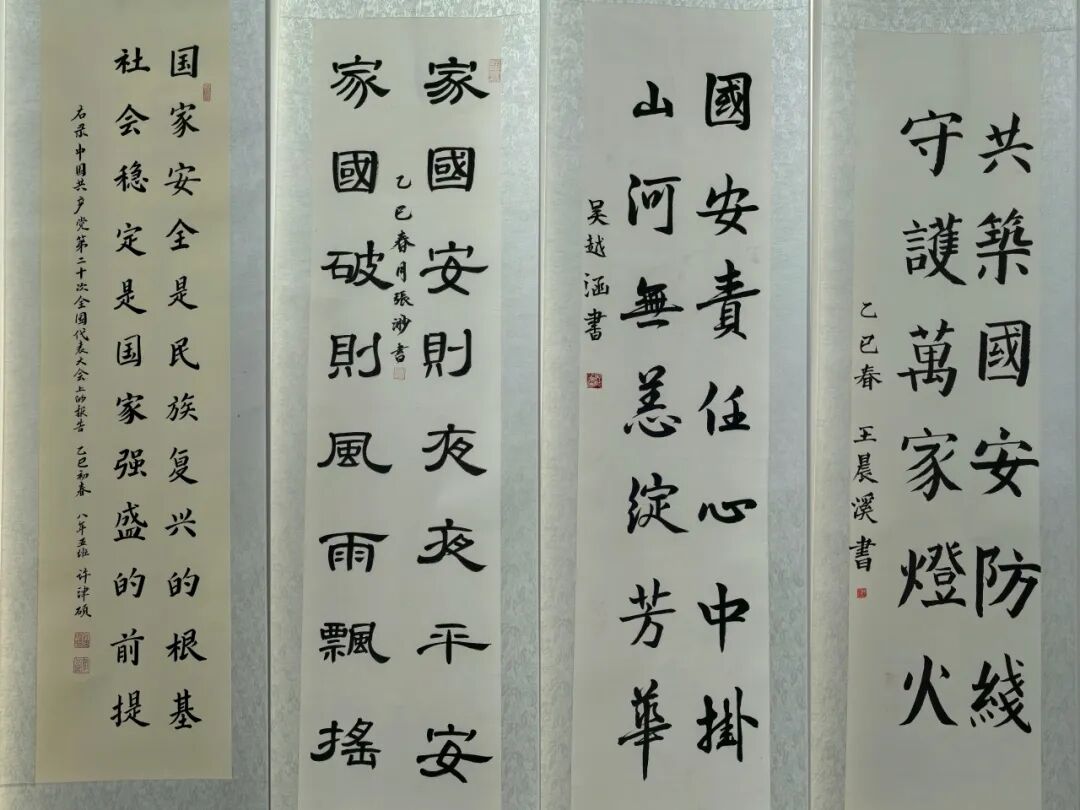 共築國安防綫
守護萬家燈火
乙巳春 王晨溪書
國安責任心中掛
山河無恙綻芳華
吴越涵書
家國安則夜夜平安
家國破則風雨飄搖
乙巳春月張渺書
国家安全是民族复兴的根基
社会稳定是国家强盛的前提
右录中国共产党第二十次全国代表大会上的报告 乙巳初春 八年五班 许津硕